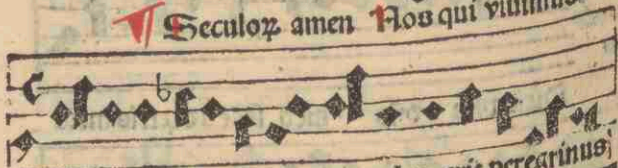 ¶ Seculoꝝ amen Nos qui viuimus
peregrinus